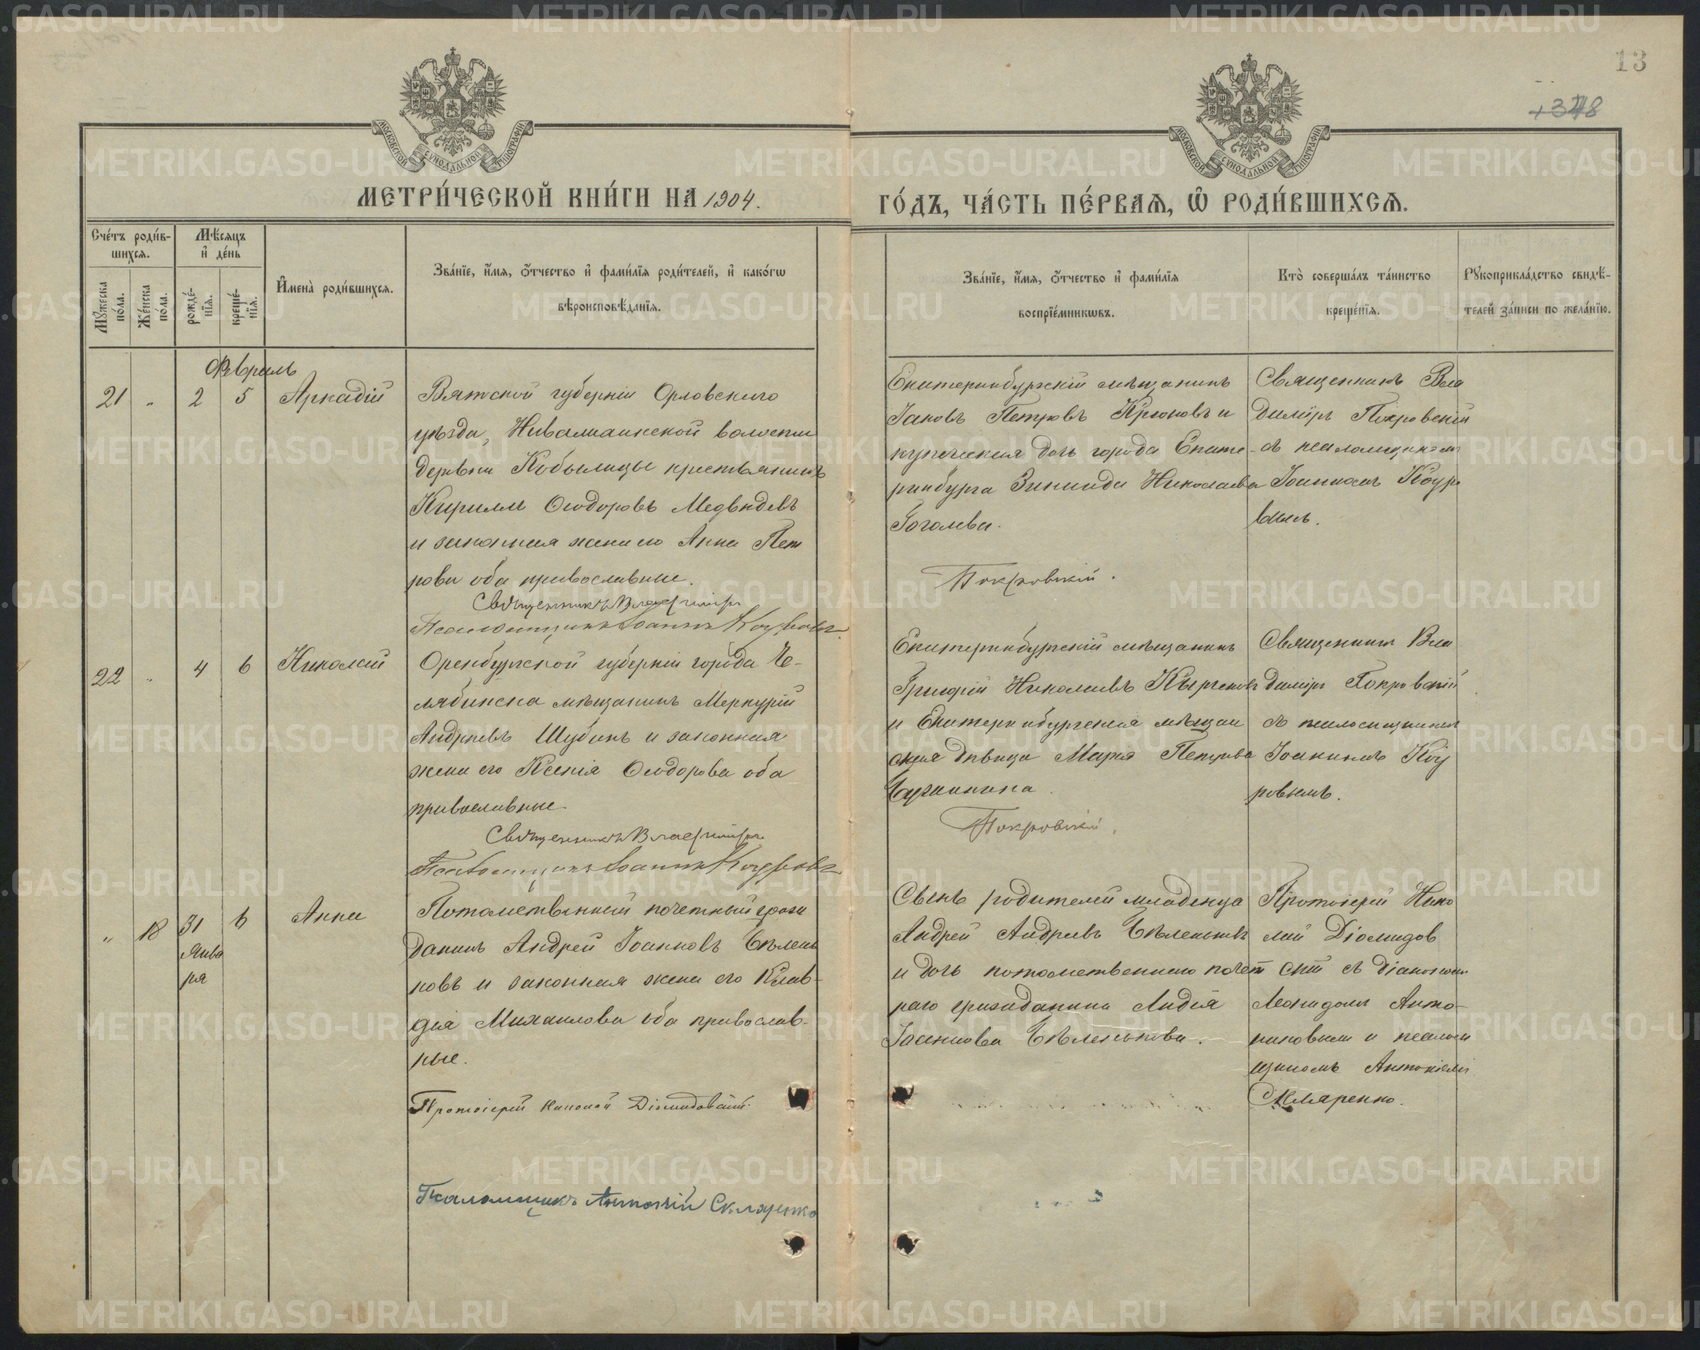 13
+348
МОСКОВСКОЙ СУНОДАЛЬНОЙ ТУПОГРАФІИ
МОСКОВСКОЙ СУНОДАЛЬНОЙ ТУПОГРАФІИ
МЕТРИ́ЧЕСКОЙ КНИ́ГИ НА 1904.
ГО́ДЪ, ЧА́СТЬ ПЕ́РВАѦ, Ѽ РОДИ́ВШИХСѦ.
Счéтъ роди́в-
шихсѧ.
Мꙋ́жеска по́ла.
Же́нска по́ла.
Мѣ́сѧцъ
и҆ де́нь
рожде́-нїѧ.
креще́-нїѧ.
И҆мена̀ роди́вшихсѧ.
Зва́нїе, и҆́мѧ, ѻ҆́тчество и҆ фами́лїѧ роди́телей, и҆ како́гѡ
вѣроисповѣ́данїѧ.
Зва́нїе, и҆́мѧ, ѻ҆́тчество и҆ фами́лїѧ
воспрїе́мникѡвъ.
Кто̀ соверша́лъ та́инство
креще́нїѧ.
Рꙋкоприкла́дство свидѣ́-
телей за́писи по жела́нїю.
Февраль
21 " 2 5 Аркадій
Вятской губерніи Орловскаго
уѣзда,
волости
деревни Кобылицы крестьянинъ
Кириллъ Ѳеодоровъ Медвѣдевъ
и законная жена его Анна Пет
рова оба православные.
Священникъ Владиміръ Покровскій.
Псаломщикъ Іоаннъ
Екатеринбургскій мѣщанинъ
Іаковъ Петровъ Крюковъ и
купеческая дочь города Екате-
ринбурга Зинаида Николаева
Гоголева.
Священникъ Вла
диміръ Покровскій
съ псаломщикомъ
Іоанномъ
вымъ.
22 " 4 6 Николай
Оренбургской губерніи города Че-
лябинска мѣщанинъ Меркурій
Андреевъ Шубинъ и законная
жена его Ксенія Ѳеодорова оба
православные.
Священникъ Владиміръ Покровскій.
Псаломщикъ Іоаннъ
Екатеринбургскій мѣщанинъ
Григорій Николаевъ
и Екатеринбургская мѣщан
ская дѣвица Марія Петрова
Священникъ Вла
диміръ Покровскій
съ псаломщикомъ
ровымъ.
" 18 31 6 Анна
Янва
ря
Потомственный почетный граж
данинъ Андрей Іоанновъ Бѣлень
ковъ и законная жена его Клав-
дія Михаилова оба православ-
ные.
Протоіерей Николай Діомидовскій.
Псаломщикъ Антоній Скляренко
Сынъ родителей младенца
Андрей Андреевъ Бѣленьковъ
и дочь потомственнаго почет
наго гражданина Лидія
Іоаннова Бѣленькова.
Протоіерей Нико
лай Діомидов
скій съ діакономъ
Леонидомъ Анто-
ниновымъ и псалом
щикомъ Антоніемъ
Скляренко.
METRIKI.GASO-URAL.RU